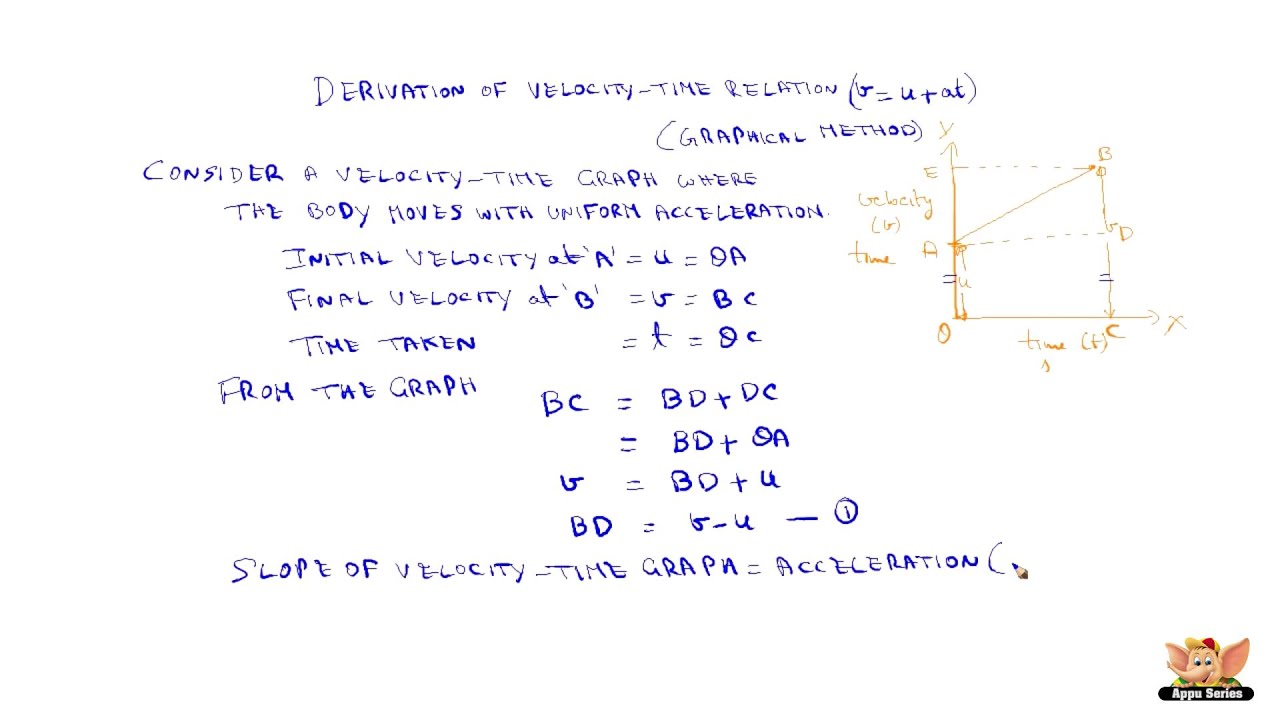 DERIVATION OF VELOCITY-TIME RELATION (v = u + at)
(GRAPHICAL METHOD)
CONSIDER A VELOCITY-TIME GRAPH WHERE
THE BODY MOVES WITH UNIFORM ACCELERATION.
INITIAL VELOCITY at 'A' = u = OA
FINAL VELOCITY at 'B' = v = BC
TIME TAKEN = t = OC
FROM THE GRAPH
BC = BD + DC
= BD + OA
v = BD + u
BD = v - u — ①
SLOPE OF VELOCITY-TIME GRAPH = ACCELERATION (
Y
B
E
velocity
(v)
v D
A
time
u
O
C
X
time (t)
s
Appu Series